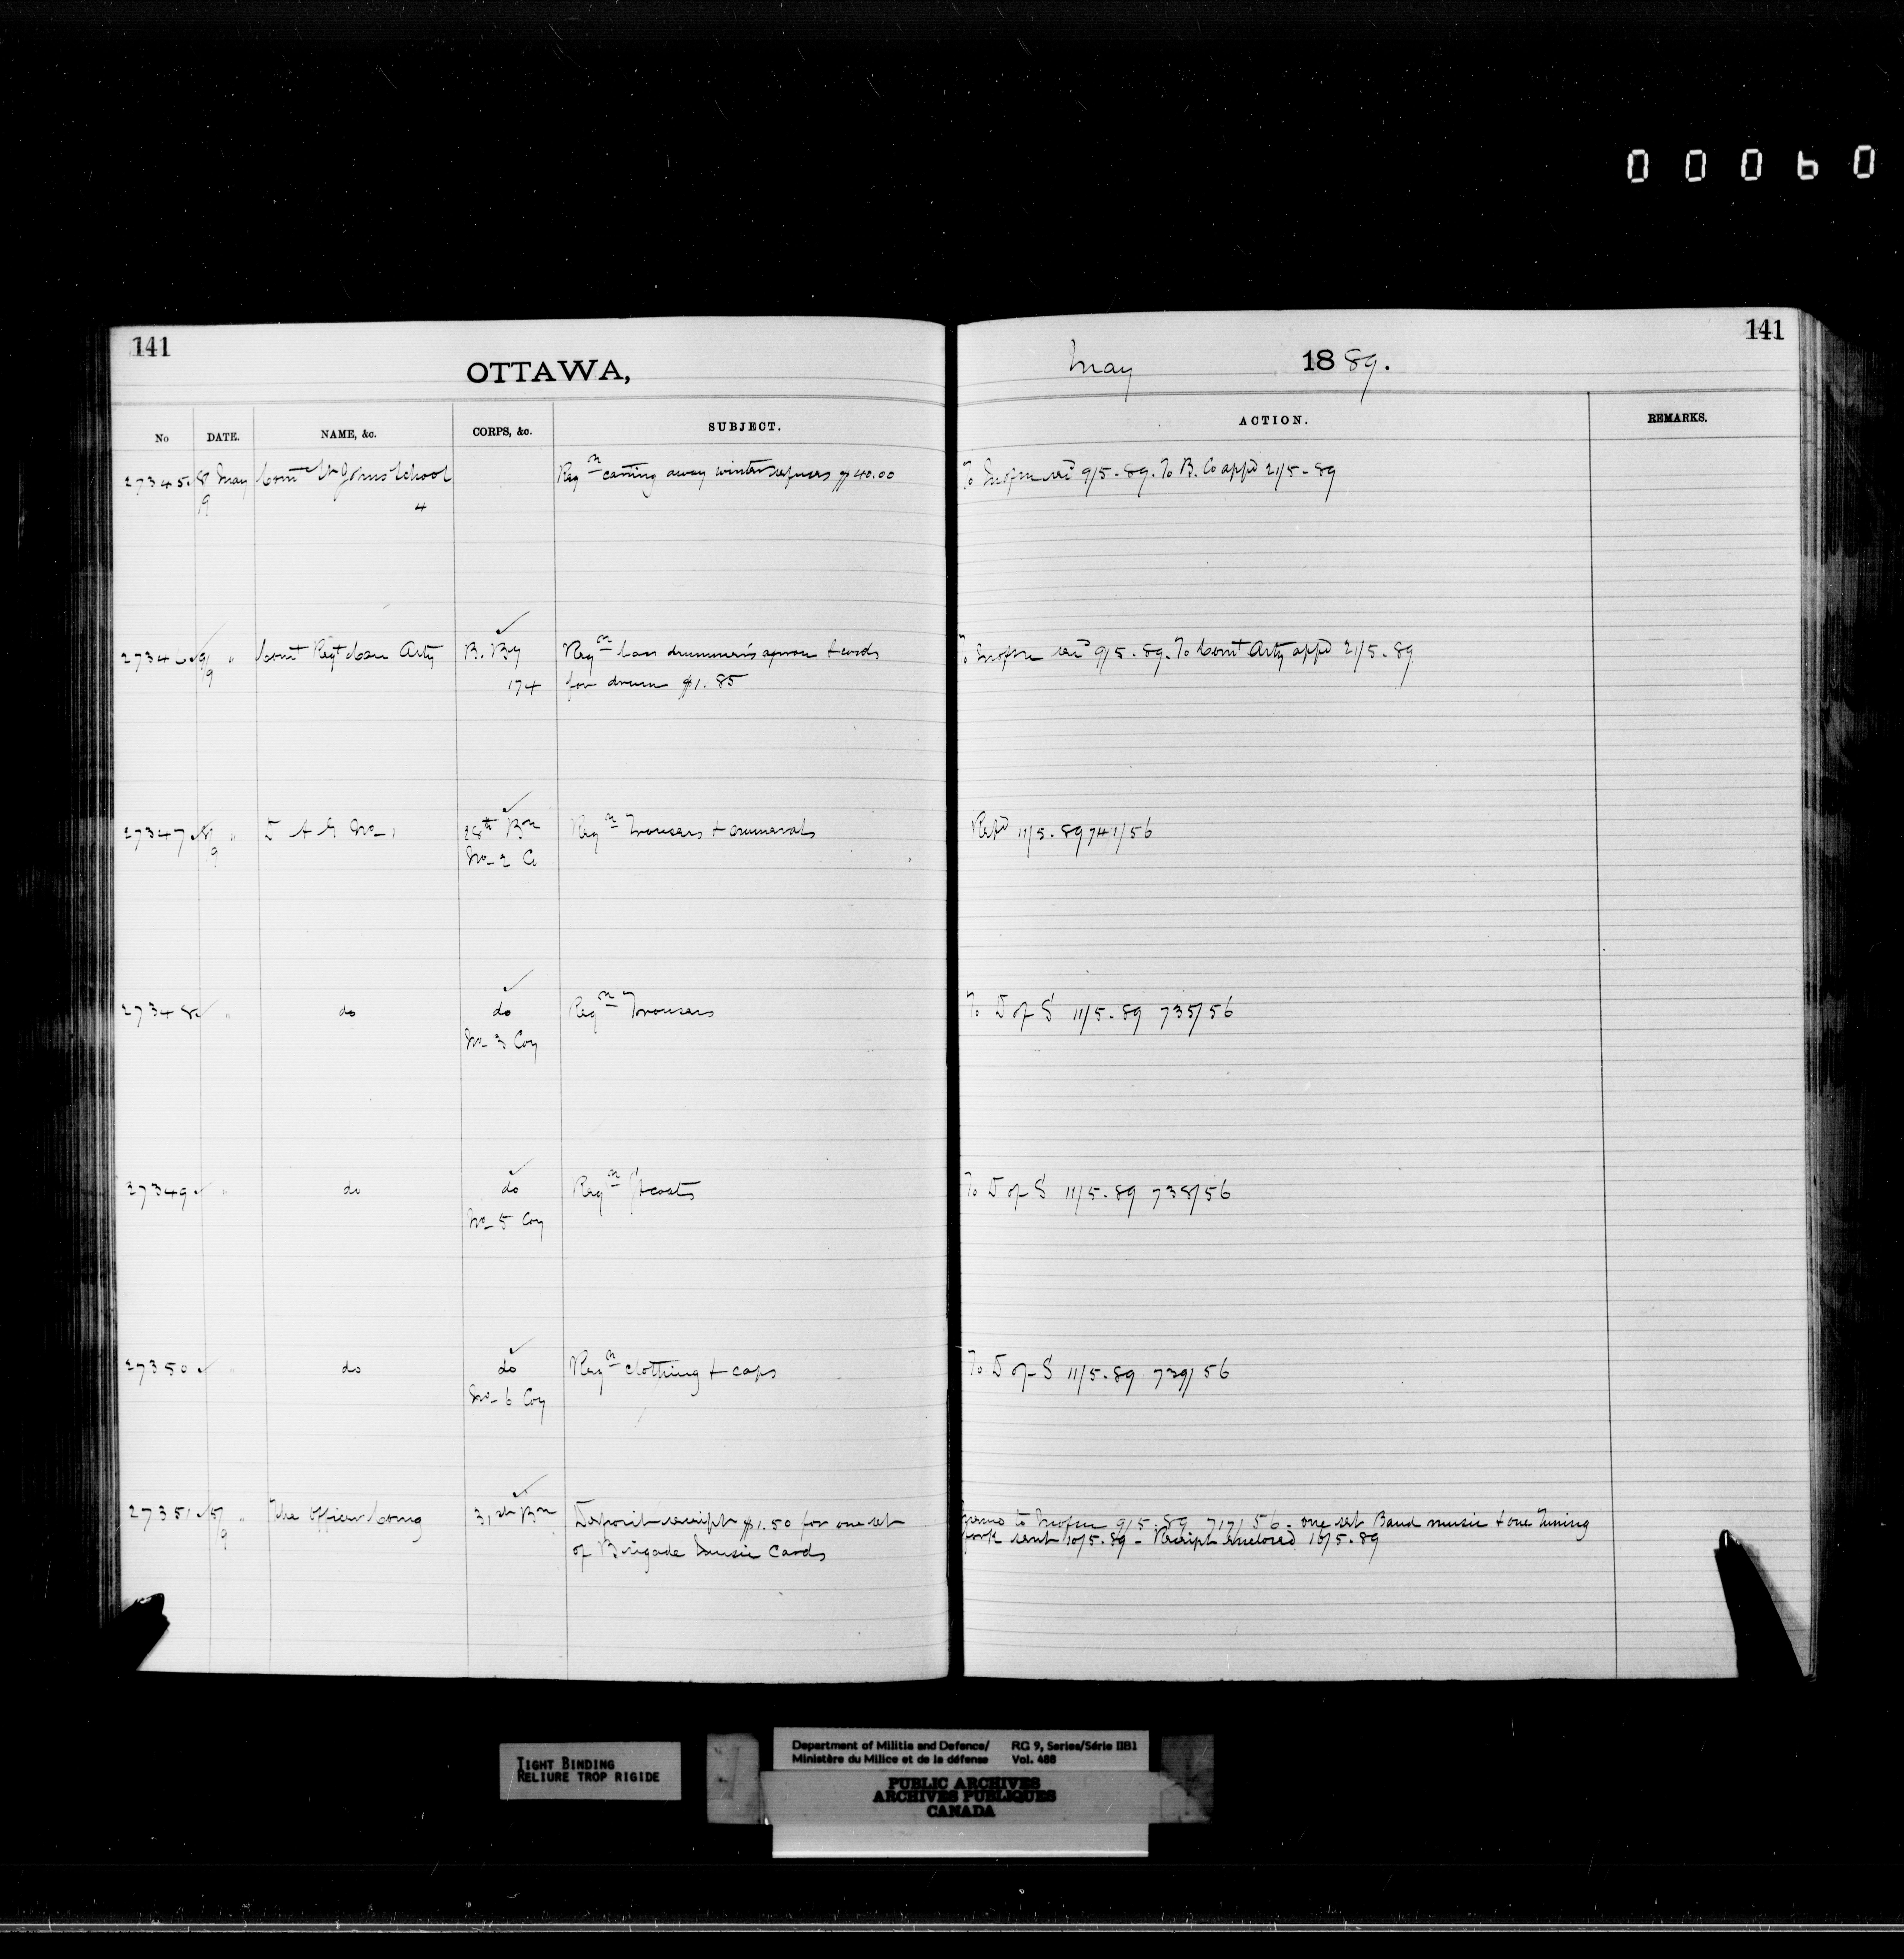 00060
141
OTTAWA,
May 1889.
141
No DATE. NAME, &c. CORPS, &c. SUBJECT. ACTION. REMARKS.
27345 8/9 May Comt St Johns School 4 Reqn carting away winter refuses $40.00 To recd 9/5-89. To B. Co appd 21/5-89
27346 9/9 " Comt Regt Can Arty B. By Reqn bass drummer's apron + cords To recd 9/5-89. To Comt Arty appd 21/5-89
174 for drum $1.85
27347 8/9 " D A G No 1 28th Bn Reqn Trousers + numerals Repd 11/5-89 741/56
No 2 Co
27348 " do do Reqn Trousers To D of S 11/5-89 735/56
No 3 Coy
27349 " do do Reqn To D of S 11/5-89 738/56
No 5 Coy
27350 " do do Reqn clothing + caps To D of S 11/5-89 739/56
No 6 Coy
27351 5/9 " The Officer Comg 31st Bn Deposit receipt $1.50 for one set to 9/5-89 717/56. one set Band music + one Tuning
of Brigade Music Cards fork sent 10/5-89 - Receipt enclosed 10/5-89
TIGHT BINDING
RELIURE TROP RIGIDE
Department of Militia and Defence/ RG 9, Series/Série IIB1
Ministère du Milice et de la défense Vol. 488
PUBLIC ARCHIVES
ARCHIVES PUBLIQUES
CANADA